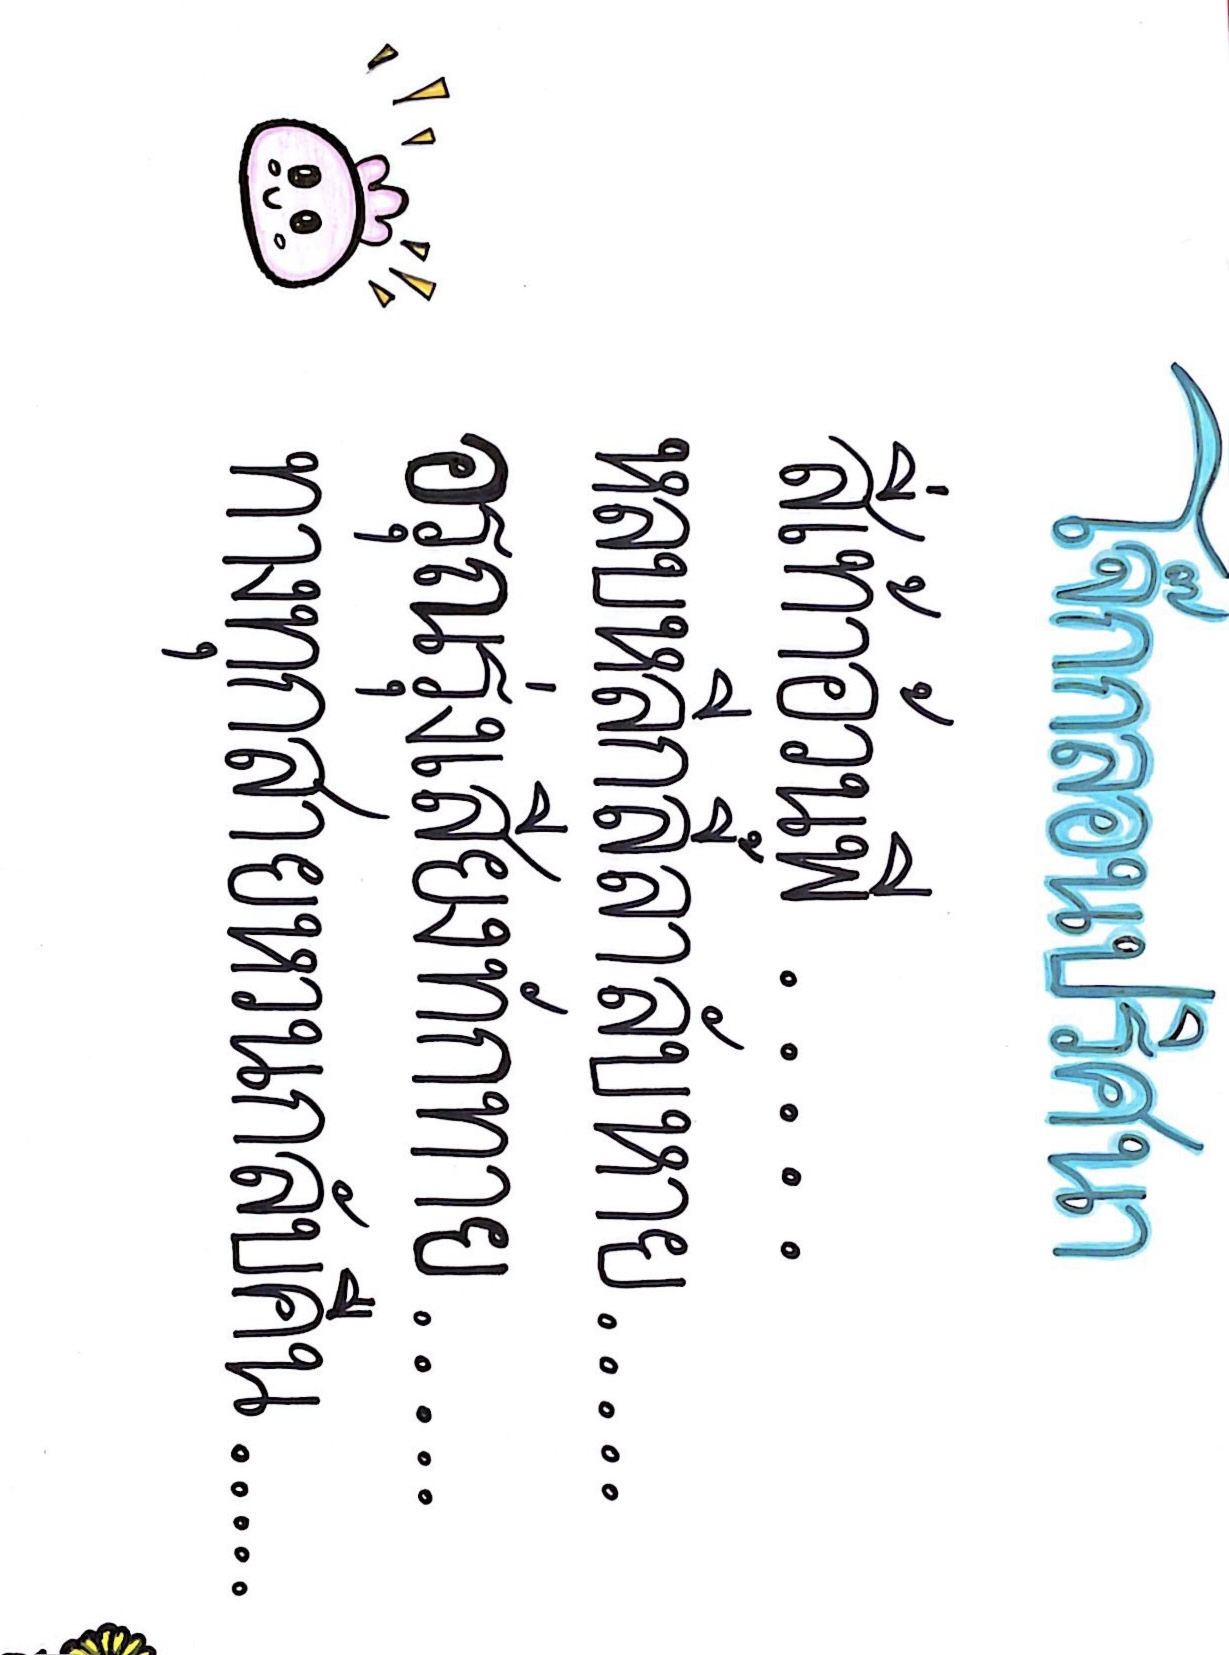 โจ๊กกลอนปริศนา
สี่เท้าอ้วนพี .....
หลบหลีกลี้ลาลับหาย.....
อรุณรุ่งเสียงทักทาย.....
ทางทุกสายหวนกลับคืน.....